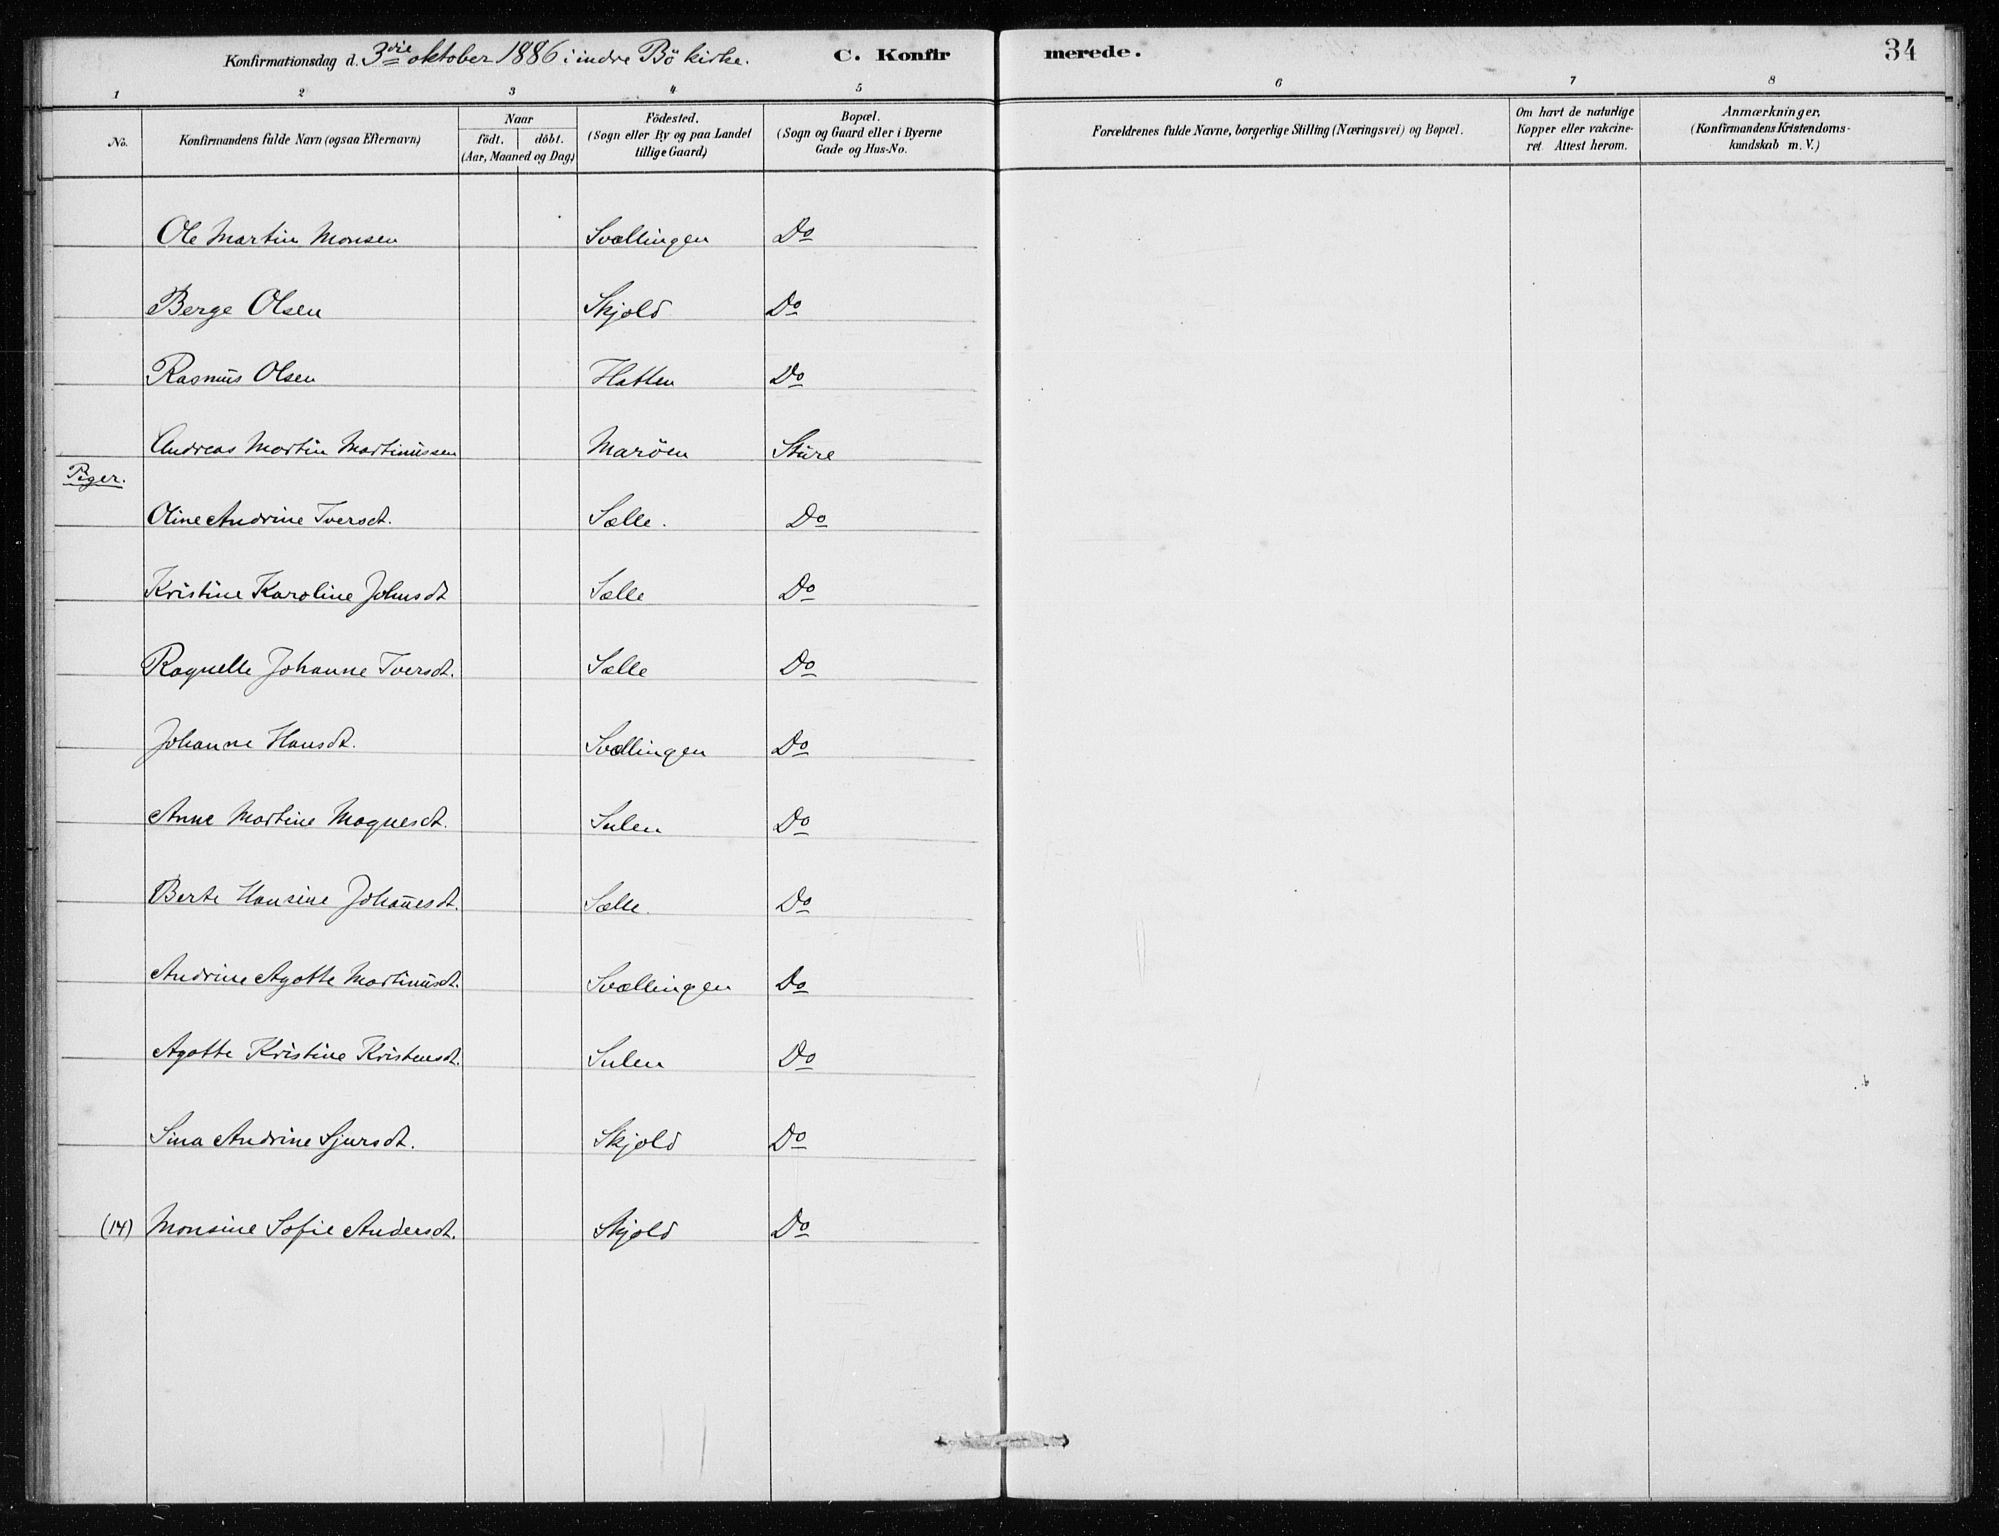 Konfirmationsdag d. 3die oktober 1886 i indre Bö kirke. C. Konfirmerede. 34
1 2 3 4 5 6 7 8
No. Konfirmandens fulde Navn (ogsaa Efternavn) Naar födt. döbt. (Aar, Maaned og Dag) Födested. (Sogn eller By og paa Landet tillige Gaard) Bopæl. (Sogn og Gaard eller i Byerne Gade og Hus-No. Forældrenes fulde Navne, borgerlige Stilling (Næringsvei) og Bopæl. Om havt de naturlige Kopper eller vakcineret Attest herom. Anmærkninger, (Konfirmandens Kristendomskundskab m. V.)
Ole Martin Monsen Svællingen Do
Berge Olsen Skjold Do
Rasmus Olsen Hatten Do
Andreas Martin Martinussen Marøen Sture
Piger.
Oline Andrine Iversdt. Sælle. Do
Kristine Karoline Johnsdt Sælle Do
Ragnelle Johanne Iversdt. Sælle Do
Johanne Hansdt. Svællingen Do
Anne Martine Magnesdt. Sulen Do
Berte Hansine Johan̄esdt. Sælle. Do
Andrine Agatte Martinusdt. Svællingen Do
Agatte Kristine Kristensdt. Sulen Do
Sina Andrine Sjursdt. Skjold Do
(14) Monsine Sofie Andersdt. Skjold Do